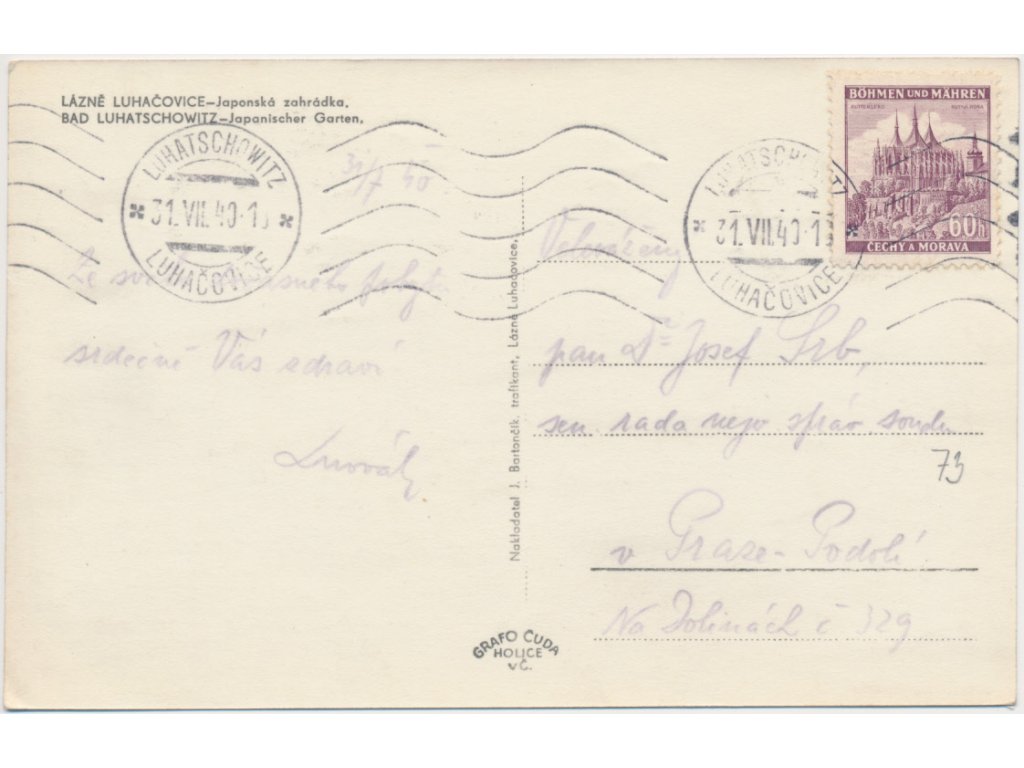 LÁZNĚ LUHAČOVICE—Japonská zahrádka.
BAD LUHATSCHOWITZ—Japanischer Garten.
LUHATSCHOWITZ
31.VII.40-1
LUHAČOVICE
31/7 40
Ze svého
srdečně Vás zdraví
Nakladatel J. Bartončík, trafikant, Lázně Luhačovice.
GRAFO ČUDA
HOLICE
v Č.
BÖHMEN UND MÄHREN
KUTTENBERG KUTNÁ HORA
60h
ČECHY A MORAVA
LUHATSCHOWITZ
31.VII.40-1
LUHAČOVICE
Veleváženy
pan Dr Josef Srb,
sen. rada nejv správ soudu
73
v Praze-Podolí
Na Dolinách č 329